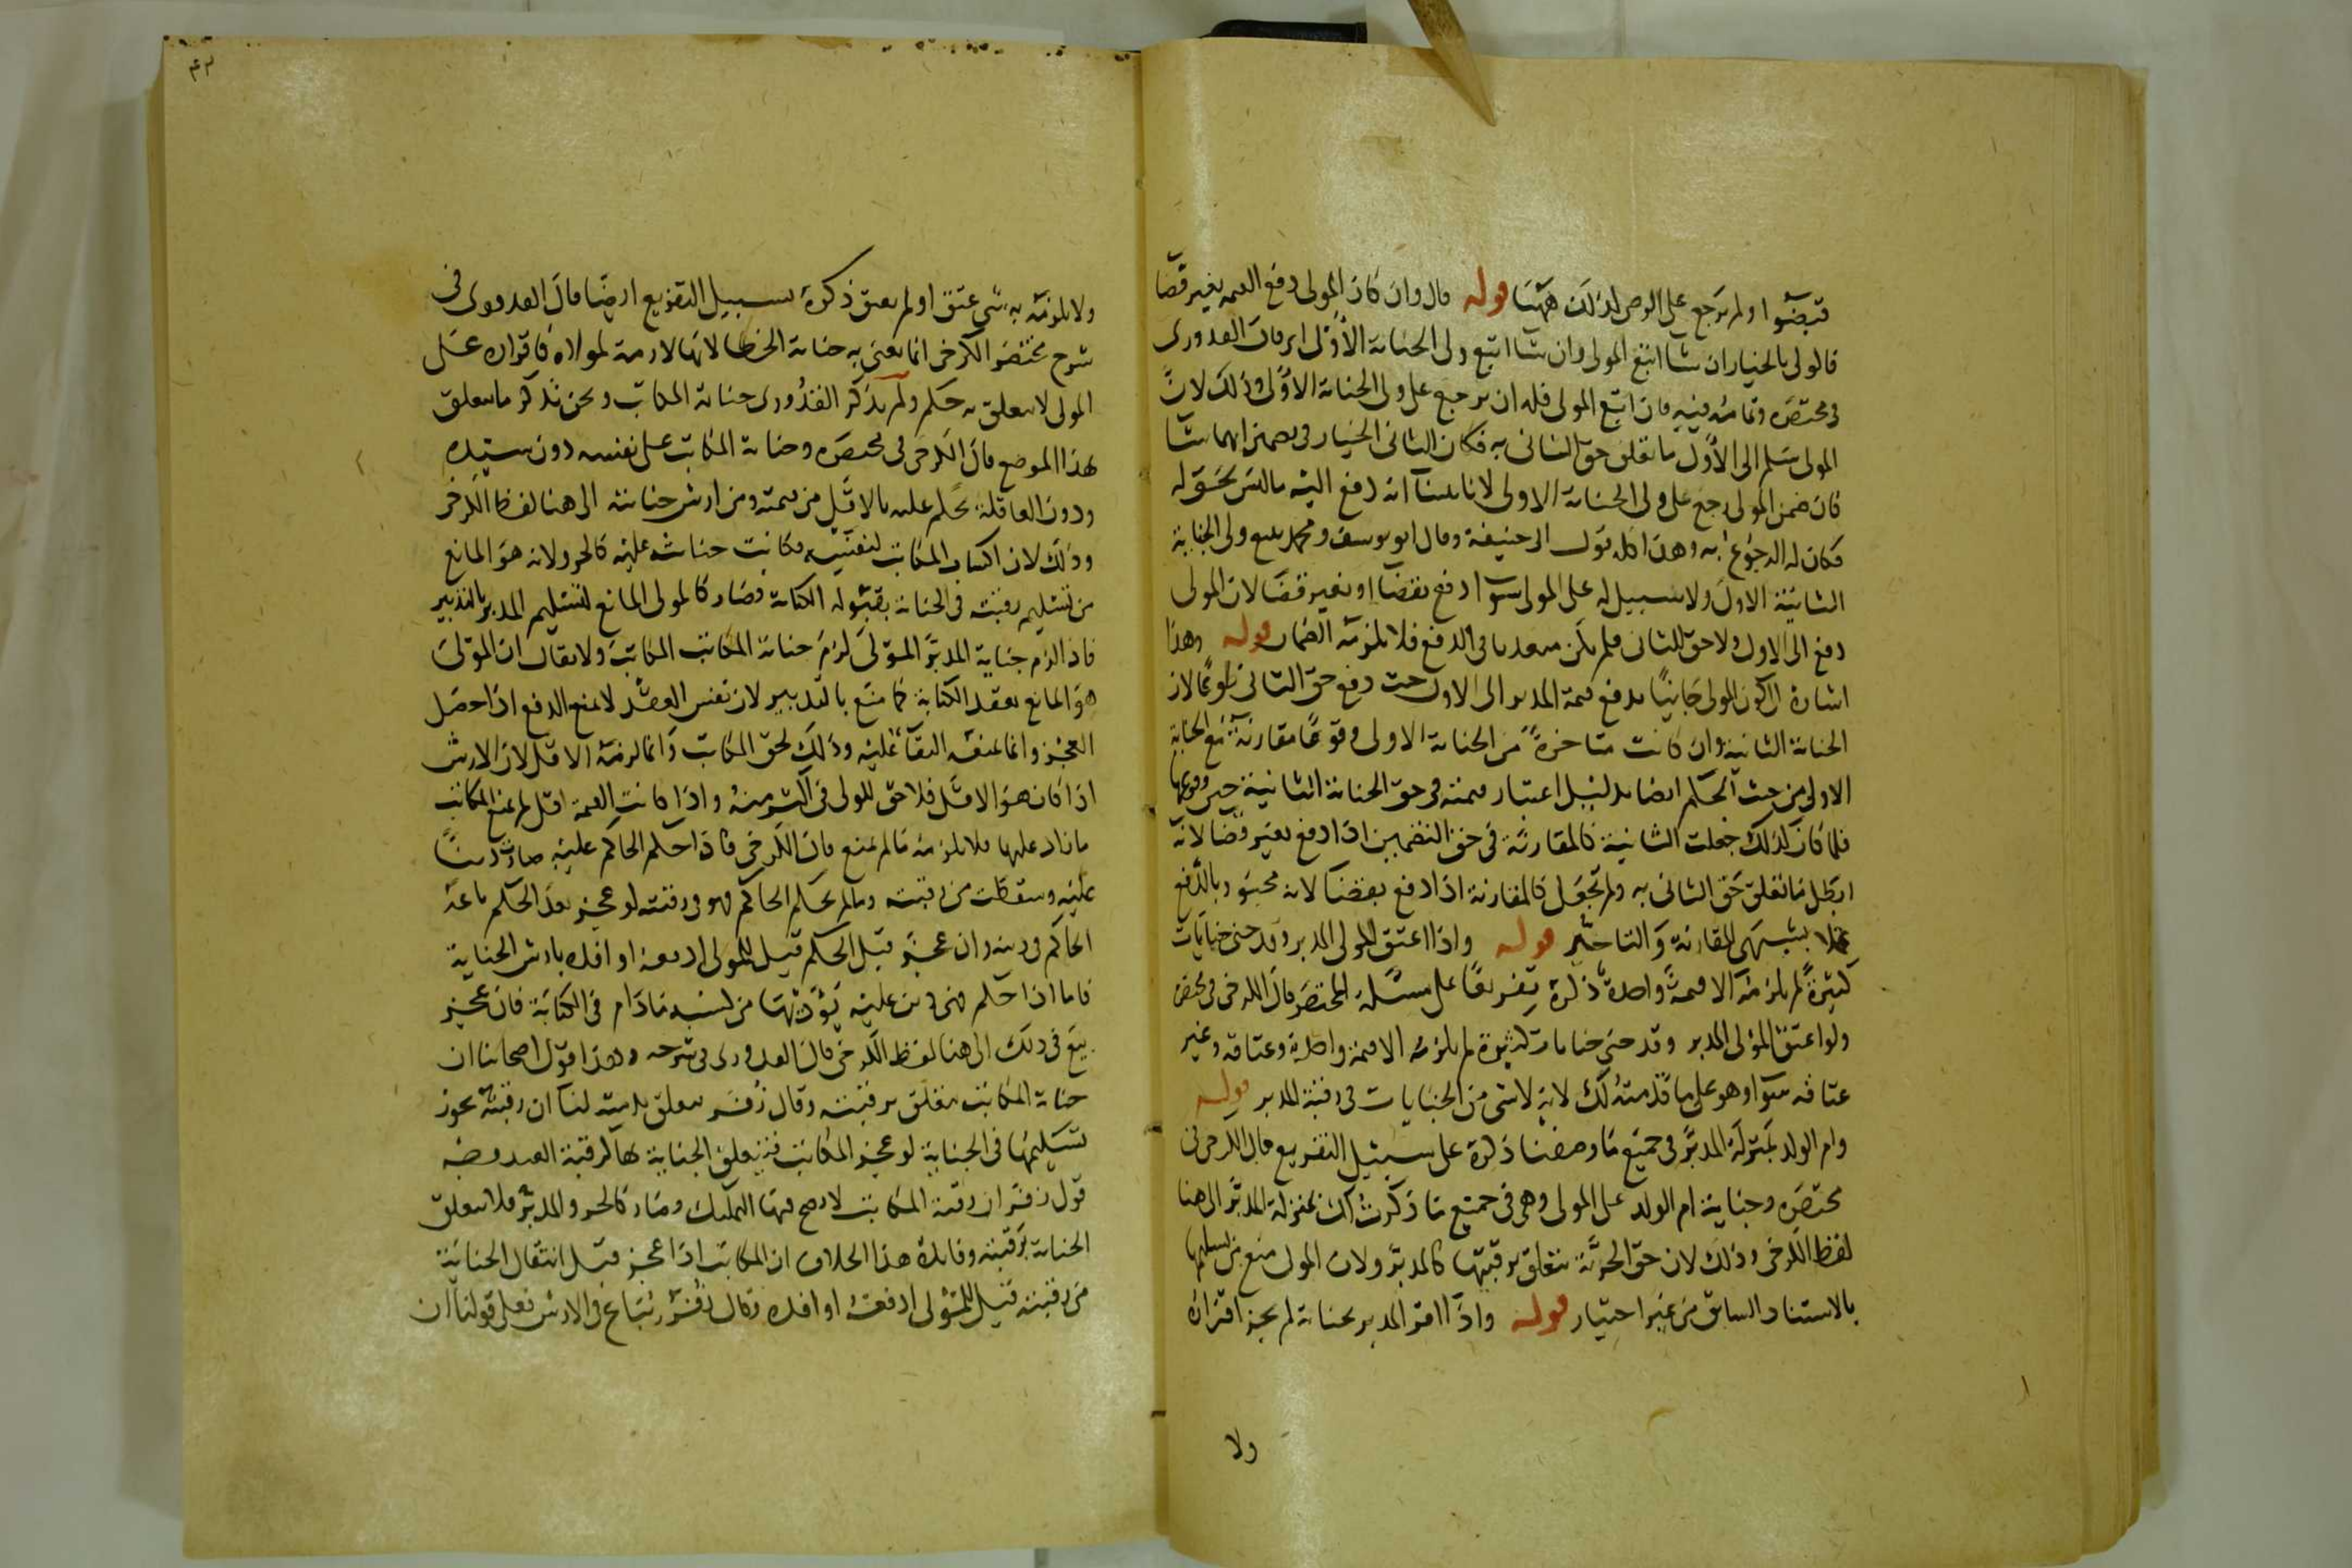 قبضوا ولم يرجع على الوصى لذلك ههنا قوله قال وان كان المولى دفع القيمة بغير قضا
فالولى بالخيار ان شا اتبع المولى وان شا اتبع ولى الجناية الأولى اى قال القدورى
فى مختصره وتمامه فيه فان اتبع المولى فله ان يرجع على ولى الجناية الأولى وذلك لانّ
المولى سلم الى الأول ما تعلق حق الثانى به فكان للثانى الخيار فى تضمين ايهما شا
فان ضمن المولى رجع على ولى الجناية الاولى لانا بينا انه دفع اليه ما ليس بحق له
فكان له الرجوع به وهذا كله قول ابى حنيفة وقال ابو يوسف ومحمد يتبع ولى الجناية
الثانية الاول ولا سبيل له على المولى سوا دفع بقضا او بغير قضا لان المولى
دفع الى الاول ولا حق للثانى فلم يكن متعديا فى الدفع فلا يلزمه الضمان قوله وهذا
اشارة الى كون المولى جانيًا بدفع قيمة المدبر الى الاول حيث دفع حق الثانى طوعًا لان
الجناية الثانية وان كانت متاخرةً من الجناية الاولى وقوعًا مقارنة مع الجناية
الاولى من حيث الحكم ايضا بدليل اعتبار قيمته فى حق الجناية الثانية حين وقوعها
فلما كان كذلك جعلت الثانية كالمقارنة فى حق التضمين اذا دفع بغير قضا لانه
ابطل ما تعلق حق الثانى به ولم تجعل كالمقارنة اذا دفع بقضا لانه مجبور بالدفع
عملا بشبهى المقارنة والتاخير قوله واذا اعتق المولى المدبر وقد جنى جنايات
كثيرةً لم يلزمه الا قيمةً واحدة ذكرة تفريعًا على مسئلة المختصر قال الكرخى فى مختصره
ولو اعتق المولى المدبر وقد جنى جنايات كثيرة لم يلزمه الا قيمة واحدة وعتاقه وغير
عتاقه سوا وهو على ما قدمته لك لانه لا شى من الجنايات فى رقبة المدبر قوله
وام الولد بمنزلة المدبر فى جميع ما وصفنا ذكرة على سبيل التفريع قال الكرخى فى
مختصره وجناية ام الولد على المولى وهى فى جميع ما ذكرت لك بمنزلة المدبر الى هنا
لفظ الكرخى وذلك لان حق الحرية تتعلق برقبتها كالمدبر ولان المولى منع من تسليمها
بالاستناد السابق من غير اختيار قوله واذا اقر المدبر بجناية لم يجز اقراره
ولا
٤٣
ولا يلزمه به شى عتق او لم يعتق ذكرة بسبيل التفريع ايضًا قال القدورى فى
شرح مختصر الكرخى انما يعنى به جناية الخطا لانها لازمة لمولاه فاقراره على
المولى لا يتعلق به حكم ولم يذكر القدورى جناية المكاتب ونحن نذكر ما يتعلق
بهذا الموضع قال الكرخى فى مختصره وجناية المكاتب على نفسه دون سيده
ودون العاقلة يحكم عليه بالاقل من قيمته ومن ارش جنايته الى هنا لفظ الكرخى
وذلك لان اكساب المكاتب لنفسه فكانت جنايته عليه كالحر ولانه هو المانع
من تسليم رقبته فى الجناية بقبوله الكتابة فصار كالمولى المانع لتسليم المدبر بالتدبير
فاذا لزم جناية المدبر المولى لزم جناية المكاتب المكاتب ولا يقال ان المولى
هو المانع بعقد الكتابة كما منع بالتدبير لان نفس العقد لا يمنع الدفع اذا حصل
العجز وانما يمنعه البقا عليه وذلك لحق المكاتب وانما لزمه الاقل لان الارش
اذا كان هو الاقل فلا حق للولى فى اكثر منه واذا كانت القيمة اقل لم يمنع المكاتب
ما زاد عليها فلا يلزمه ما لم يمنع قال الكرخى فاذا حكم الحاكم عليه صارت دينًا
عليه وسقطت من رقبته وما لم يحكم الحاكم فهو فى رقبته لو عجز بعد الحكم باعه
الحاكم فى دينه وان عجز قبل الحكم قيل للمولى ادفعه او افده بارش الجناية
فاما اذا حكم فهى دين عليه يؤديها من كسبه مادام فى الكتابة فان عجز
بيع فى ذلك الى هنا لفظ الكرخى قال القدورى فى شرحه وهذا قول اصحابنا ان
جناية المكاتب تتعلق برقبته وقال زفر يتعلق بذمته لنا ان رقبته يجوز
تسليمها فى الجناية لو عجز المكاتب فتتعلق الجناية بها كرقبة العبد وجه
قول زفر ان رقبة المكاتب لا يصح فيها التمليك وصار كالحر والمدبر فلا يتعلق
الجناية برقبته وفايدة هذا الخلاف ان المكاتب اذا عجز قبل انتقال الجناية
من رقبته قيل للمولى ادفعه او افده وقال زفر يُباع فى الارش فعلى قولنا ان